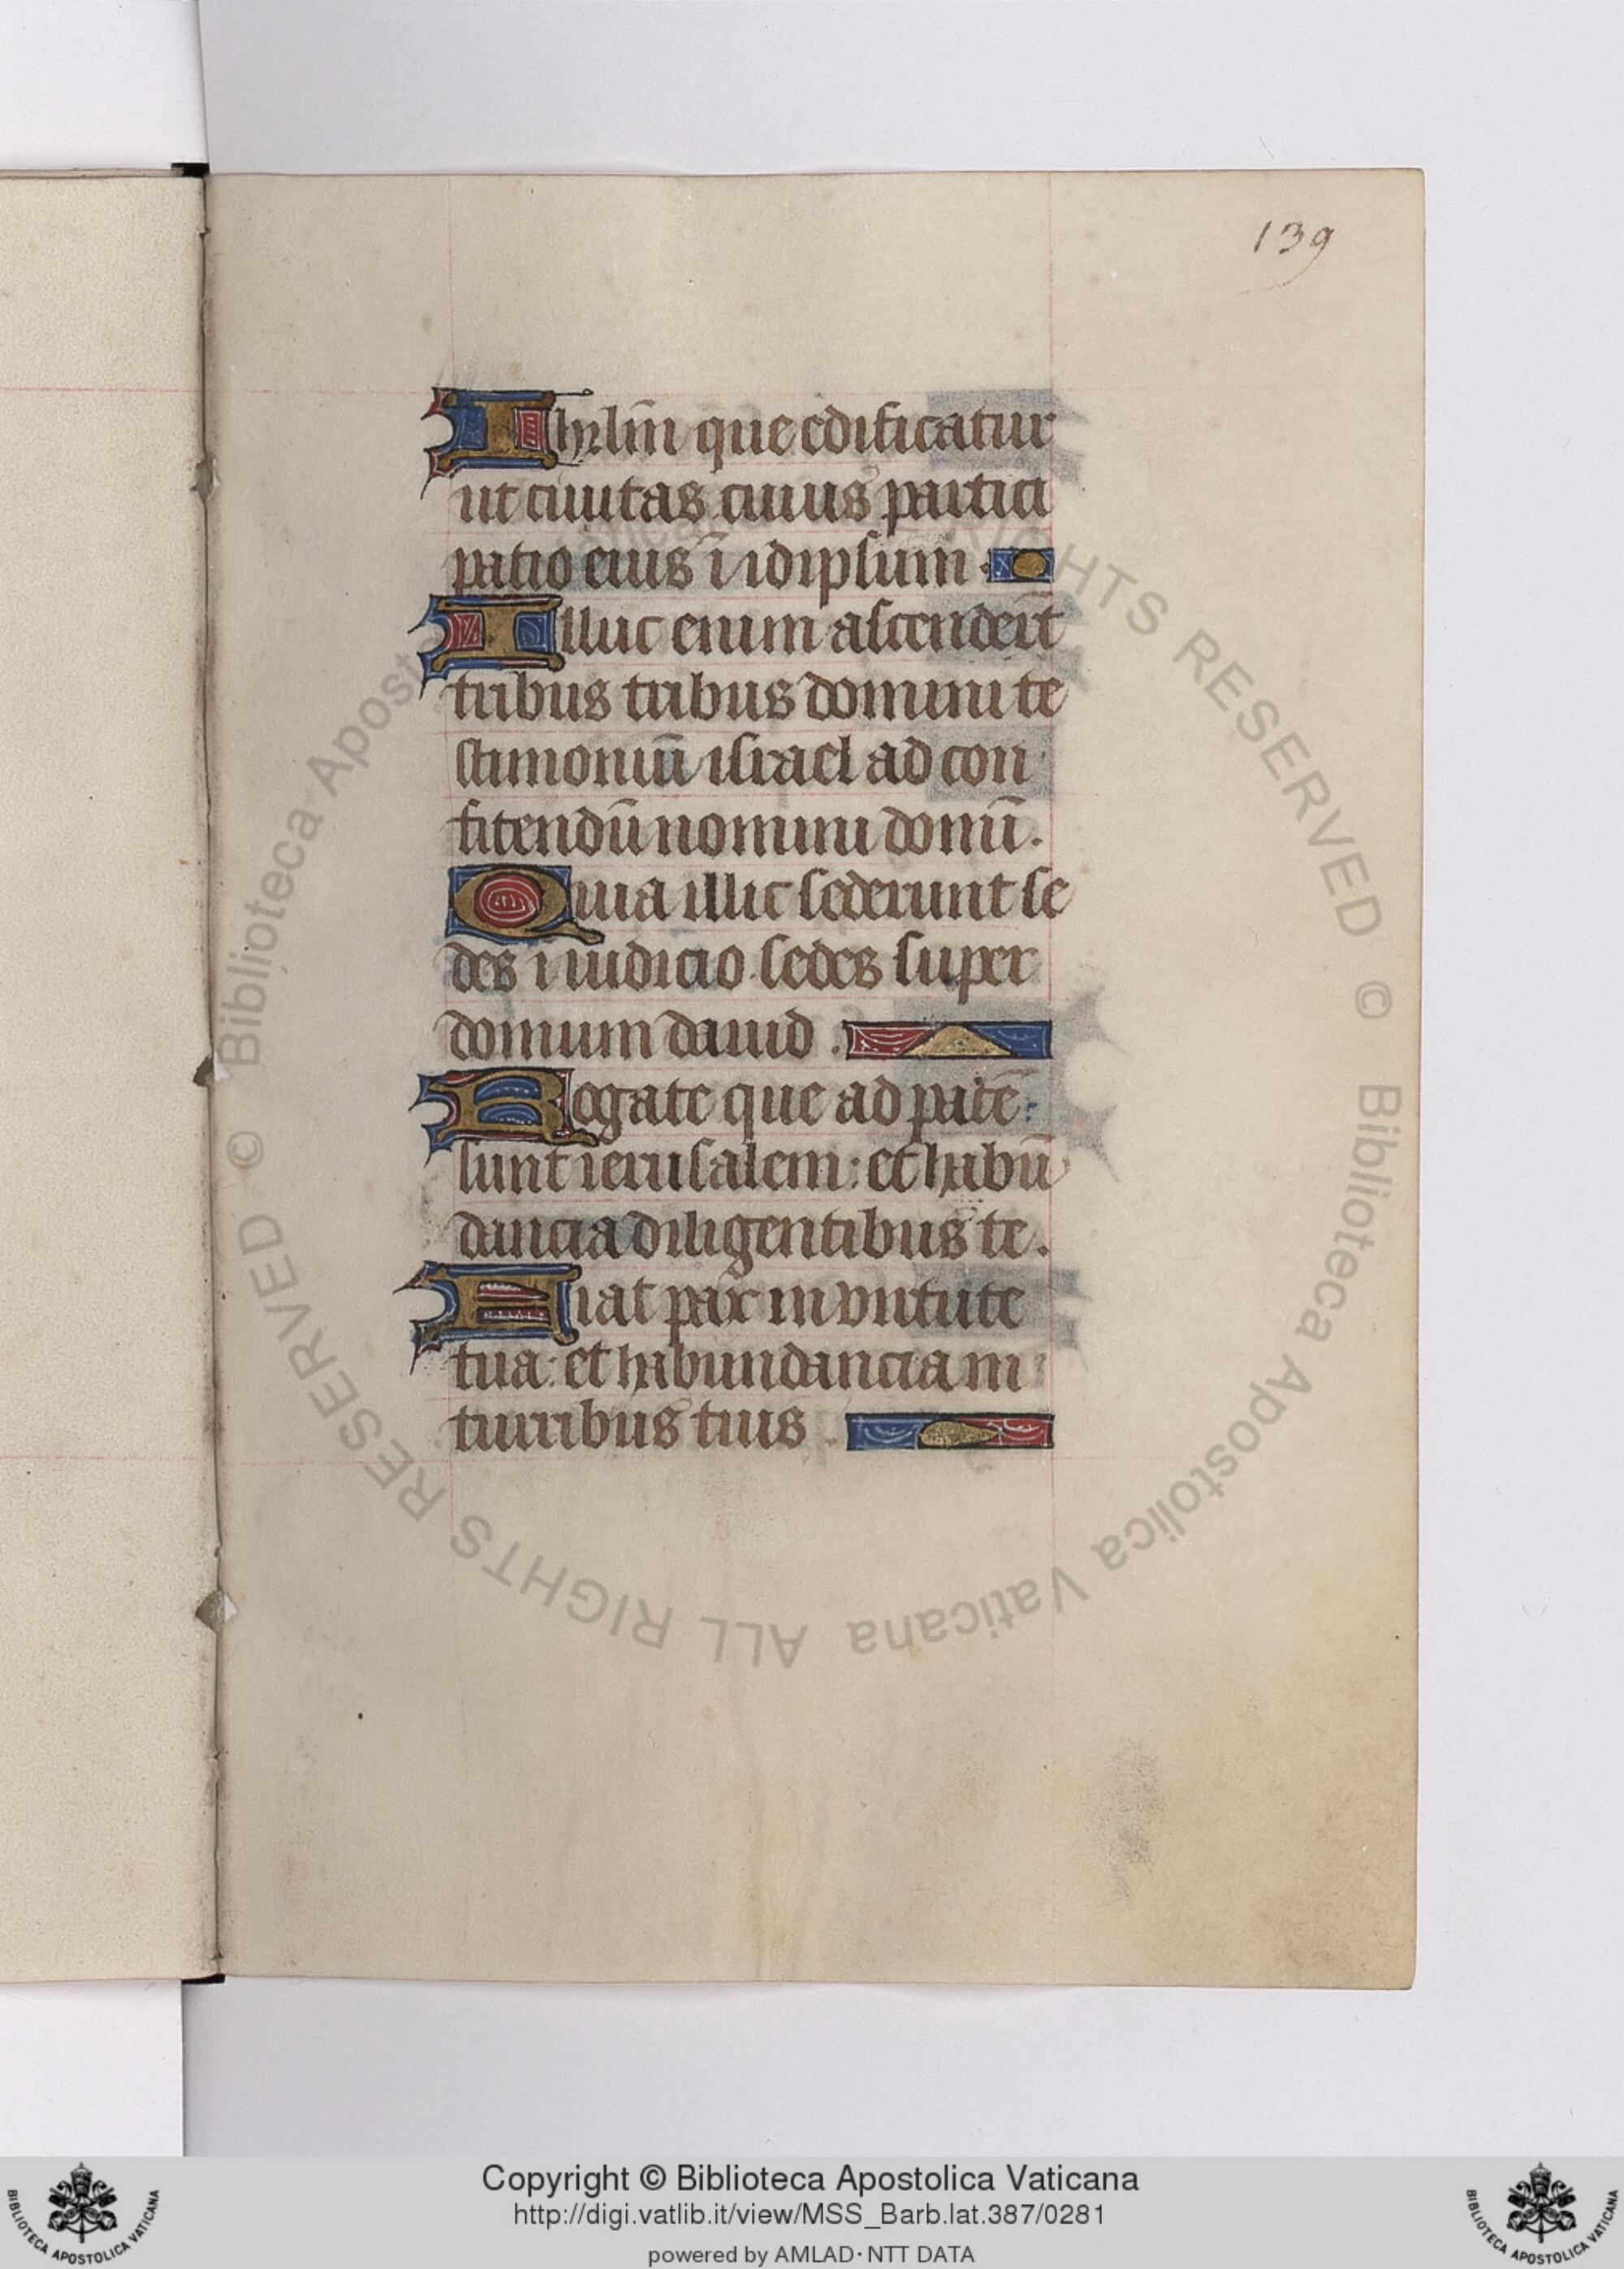 139
Ihrlm̄ que edificatur
ut ciuitas cuius partici
patio eius ī idipsum .
Illuc enim ascender̄t
tribus tribus domini te
stimoniū israel ad con
fitendū nomini domī .
Quia illic sederunt se
des i iudicio sedes super
domum dauid .
Rogate que ad pacē :
sunt ierusalem : et habū
dancia diligentibus te .
Fiat pax in virtute
tua : et habundancia in
turribus tuis .
© Biblioteca Apostolica Vaticana ALL RIGHTS RESERVED © Biblioteca Apostolica Vaticana ALL RIGHTS RESERVED
Copyright © Biblioteca Apostolica Vaticana
http://digi.vatlib.it/view/MSS_Barb.lat.387/0281
powered by AMLAD·NTT DATA
BIBLIOTECA APOSTOLICA VATICANA
BIBLIOTECA APOSTOLICA VATICANA